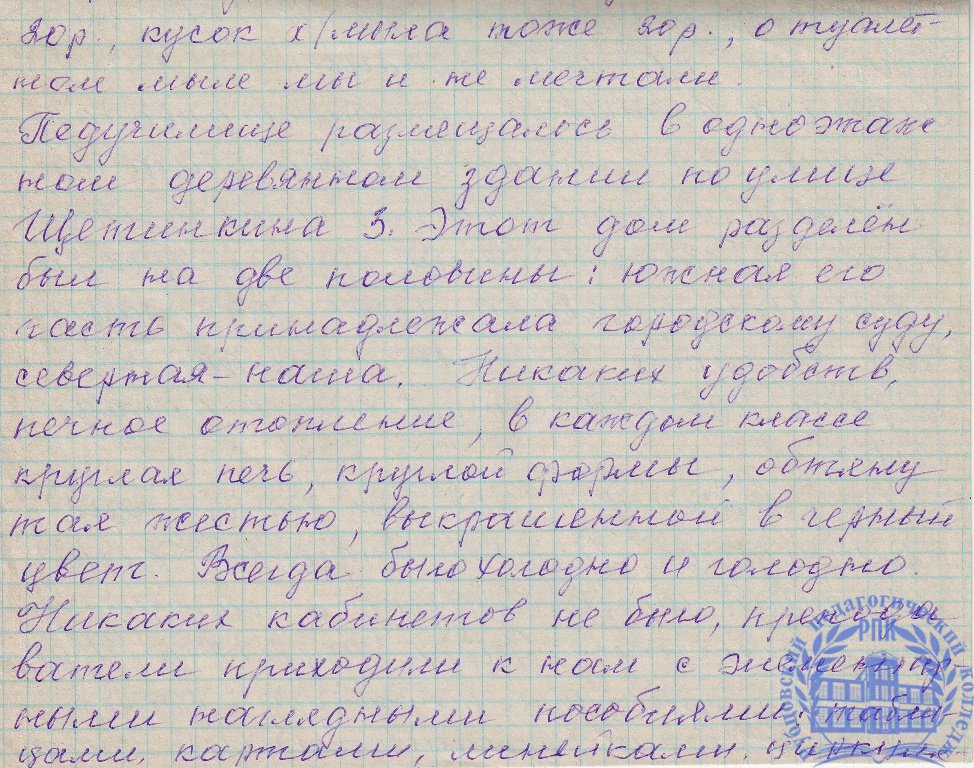 20р., кусок х/мыла тоже 20р., о туалет-
ном мыле мы и не мечтали.
Педучилище размещалось в одноэтаж
ном деревянном здании по улице
Щетинкина 3. Этот дом разделён
был на две половины: южная его
часть принадлежала городскому суду,
северная – наша. Никаких удобств,
печное отопление, в каждом классе
круглая печь, круглой формы, обтяну
тая жестью, выкрашенной в черный
цвет. Всегда было холодно и голодно.
Никаких кабинетов не было, препода
ватели приходили к нам с элементар
ными наглядными пособиями: табли-
цами, картами, линейками, циркуля
педагогический колледж
РПК